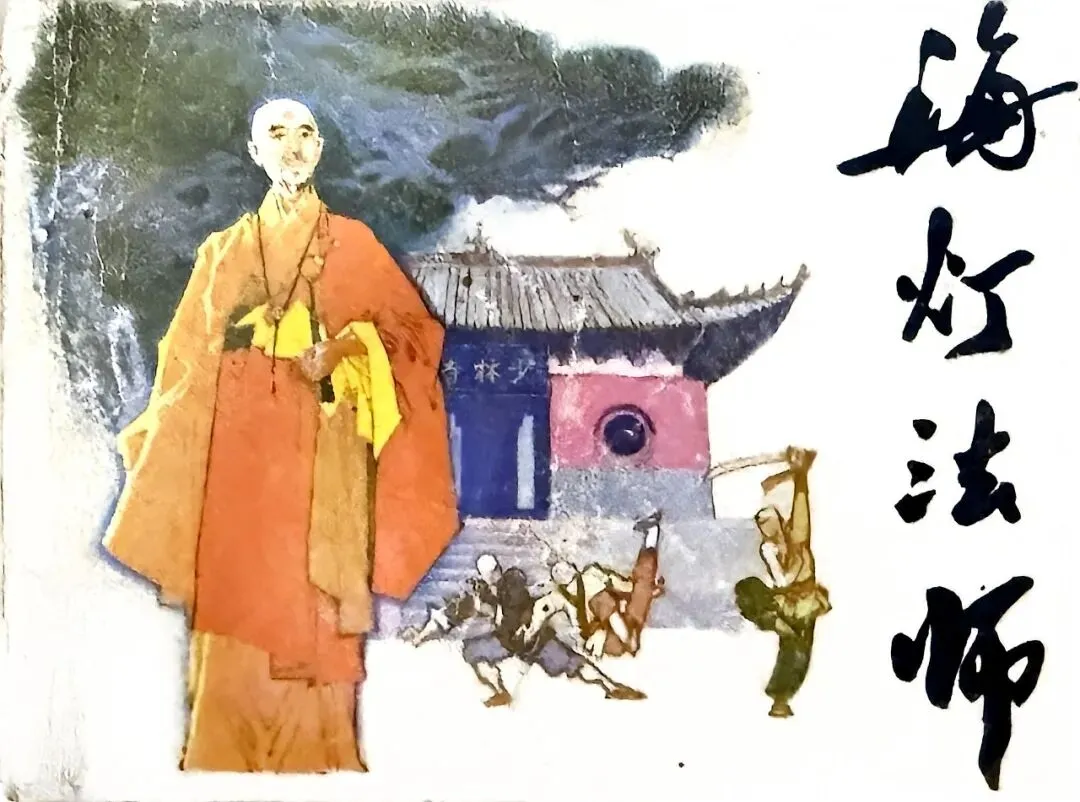 海灯法师
少林寺